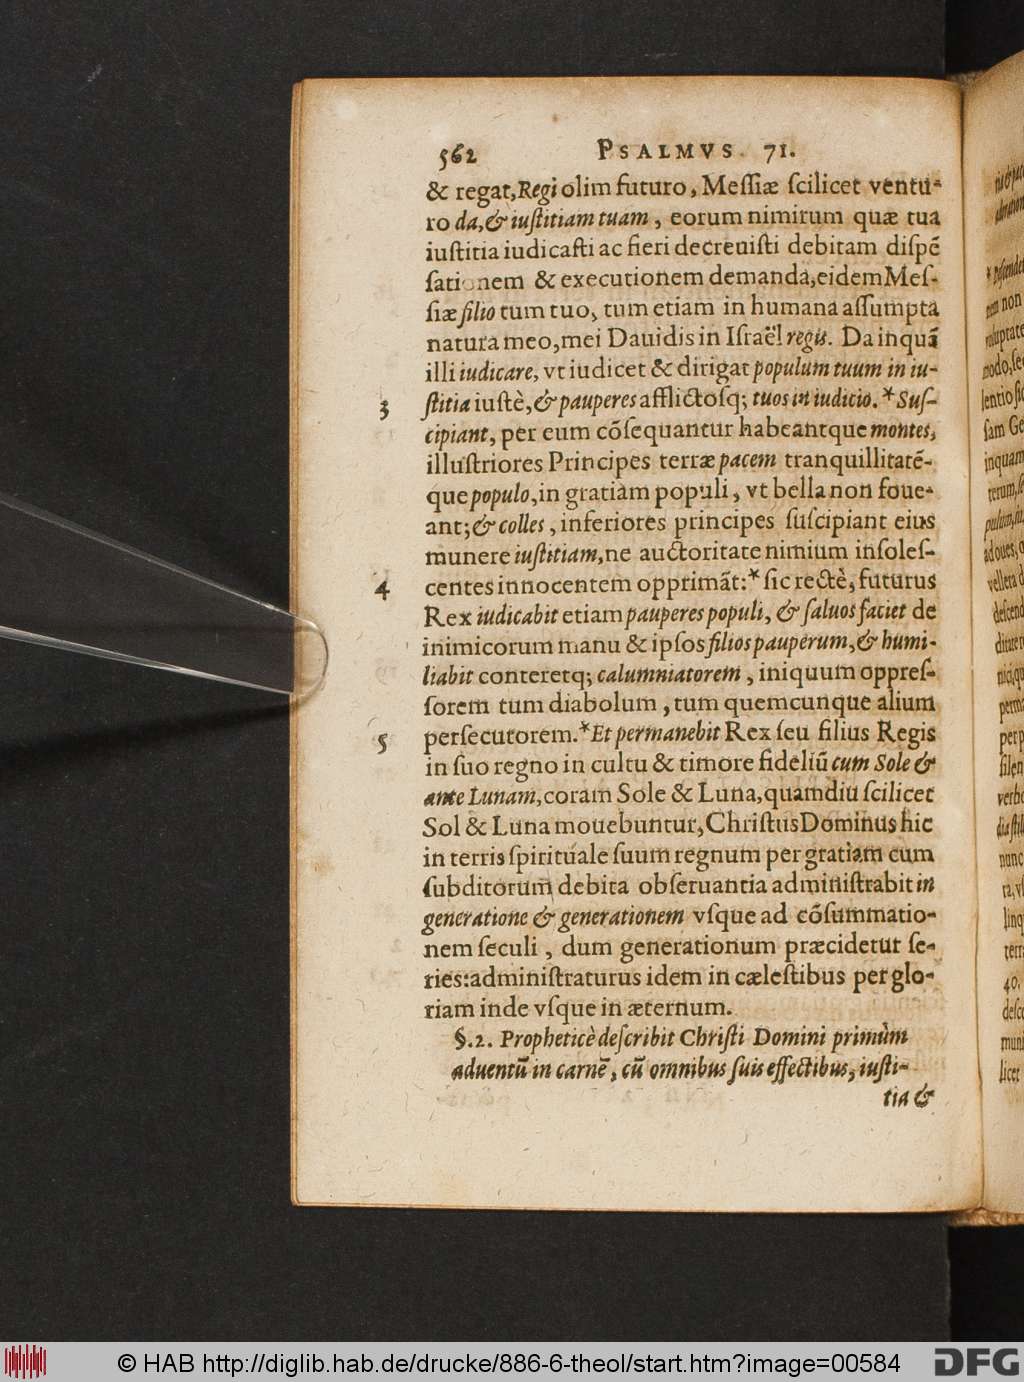 562 PSALMVS. 71.
& regat, Regi olim futuro, Meſſiæ ſcilicet ventu-
ro da, & iuſtitiam tuam, eorum nimirum quæ tua
iuſtitia iudicaſti ac fieri decreuiſti debitam diſpẽ
ſationem & executionem demanda, eidem Meſ-
ſiæ filio tum tuo, tum etiam in humana aſſumpta
natura meo, mei Dauidis in Iſraël regis. Da inquã
illi iudicare, vt iudicet & dirigat populum tuum in iu-
3 ſtitia iuſtè, & pauperes afflictoſq; tuos in iudicio. * Suſ-
cipiant, per eum cõſequantur habeantque montes,
illuſtriores Principes terræ pacem tranquillitatẽ-
que populo, in gratiam populi, vt bella non foue-
ant; & colles, inferiores principes ſuſcipiant eius
munere iuſtitiam, ne auctoritate nimium inſoleſ-
4 centes innocentem opprimãt: * ſic rectè, futurus
Rex iudicabit etiam pauperes populi, & ſaluos faciet de
inimicorum manu & ipſos filios pauperum, & humi-
liabit conteretq; calumniatorem, iniquum oppreſ-
ſorem tum diabolum, tum quemcunque alium
5 perſecutorem. * Et permanebit Rex ſeu filius Regis
in ſuo regno in cultu & timore fideliũ cum Sole &
ante Lunam, coram Sole & Luna, quamdiu ſcilicet
Sol & Luna mouebuntur, Chriſtus Dominus hic
in terris ſpirituale ſuum regnum per gratiam cum
ſubditorum debita obſeruantia adminiſtrabit in
generatione & generationem vſque ad cõſummatio-
nem ſeculi, dum generationum præcidetur ſe-
ries: adminiſtraturus idem in cæleſtibus per glo-
riam inde vſque in æternum.
§. 2. Propheticè deſcribit Chriſti Domini primùm
aduentũ in carnẽ, cũ omnibus ſuis effectibus, iuſti-
tia &
© HAB http://diglib.hab.de/drucke/886-6-theol/start.htm?image=00584
DFG